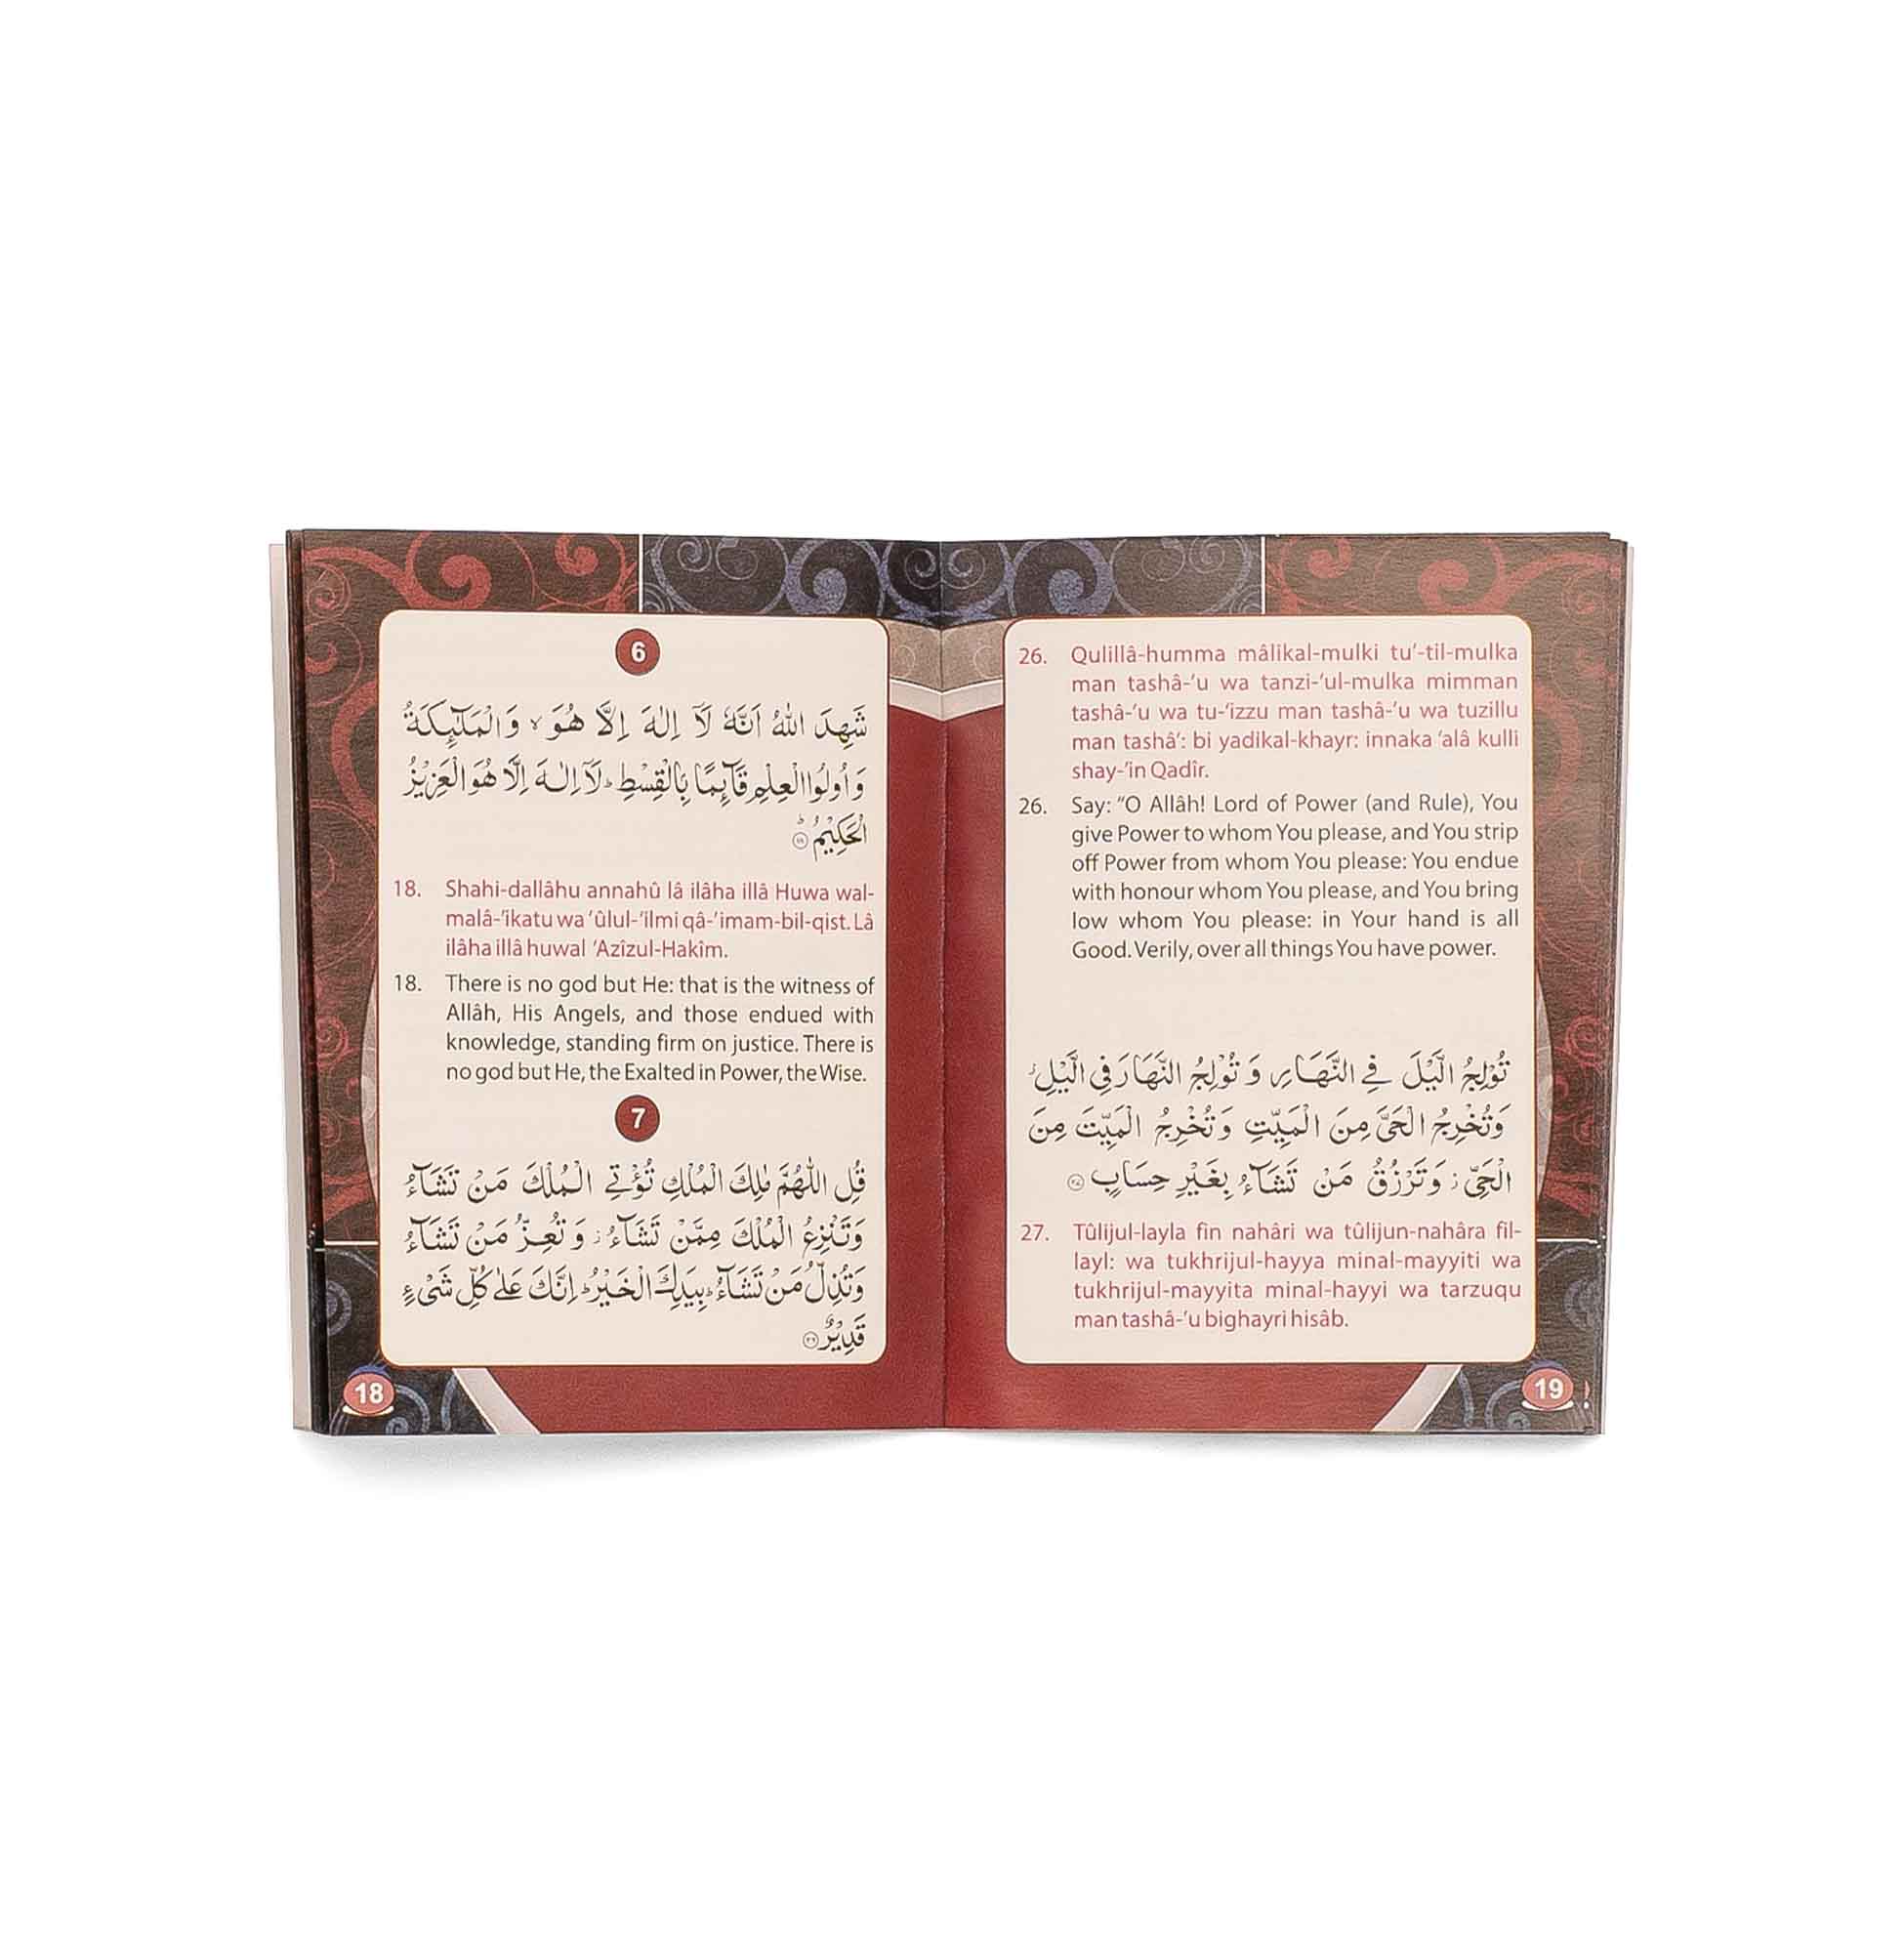 6
شَهِدَ اللّٰهُ اَنَّهٗ لَاۤ اِلٰهَ اِلَّا هُوَ ۙ وَالْمَلٰٓئِكَةُ
وَاُولُوا الْعِلْمِ قَآئِمًۢا بِالْقِسْطِ ؕ لَاۤ اِلٰهَ اِلَّا هُوَ الْعَزِيْزُ
الْحَكِيْمُ ؕ ۱۸
18. Shahi-dallâhu annahû lâ ilâha illâ Huwa wal-
malâ-'ikatu wa 'ûlul-'ilmi qâ-'imam-bil-qist. Lâ
ilâha illâ huwal 'Azîzul-Hakîm.
18. There is no god but He: that is the witness of
Allâh, His Angels, and those endued with
knowledge, standing firm on justice. There is
no god but He, the Exalted in Power, the Wise.
7
قُلِ اللّٰهُمَّ مٰلِكَ الْمُلْكِ تُؤْتِي الْمُلْكَ مَنْ تَشَآءُ
وَتَنْزِعُ الْمُلْكَ مِمَّنْ تَشَآءُ ؗ وَتُعِزُّ مَنْ تَشَآءُ
وَتُذِلُّ مَنْ تَشَآءُ ؕ بِيَدِكَ الْخَيْرُ ؕ اِنَّكَ عَلٰى كُلِّ شَيْءٍ
قَدِيْرٌ ۲۶
18
26. Qulillâ-humma mâlikal-mulki tu'-til-mulka
man tashâ-'u wa tanzi-'ul-mulka mimman
tashâ-'u wa tu-'izzu man tashâ-'u wa tuzillu
man tashâ': bi yadikal-khayr: innaka 'alâ kulli
shay-'in Qadîr.
26. Say: "O Allâh! Lord of Power (and Rule), You
give Power to whom You please, and You strip
off Power from whom You please: You endue
with honour whom You please, and You bring
low whom You please: in Your hand is all
Good. Verily, over all things You have power.
تُوْلِجُ الَّيْلَ فِي النَّهَارِ وَتُوْلِجُ النَّهَارَ فِي الَّيْلِ ؗ
وَتُخْرِجُ الْحَيَّ مِنَ الْمَيِّتِ وَتُخْرِجُ الْمَيِّتَ مِنَ
الْحَيِّ ؗ وَتَرْزُقُ مَنْ تَشَآءُ بِغَيْرِ حِسَابٍ
27. Tûlijul-layla fin nahâri wa tûlijun-nahâra fil-
layl: wa tukhrijul-hayya minal-mayyiti wa
tukhrijul-mayyita minal-hayyi wa tarzuqu
man tashâ-'u bighayri hisâb.
19